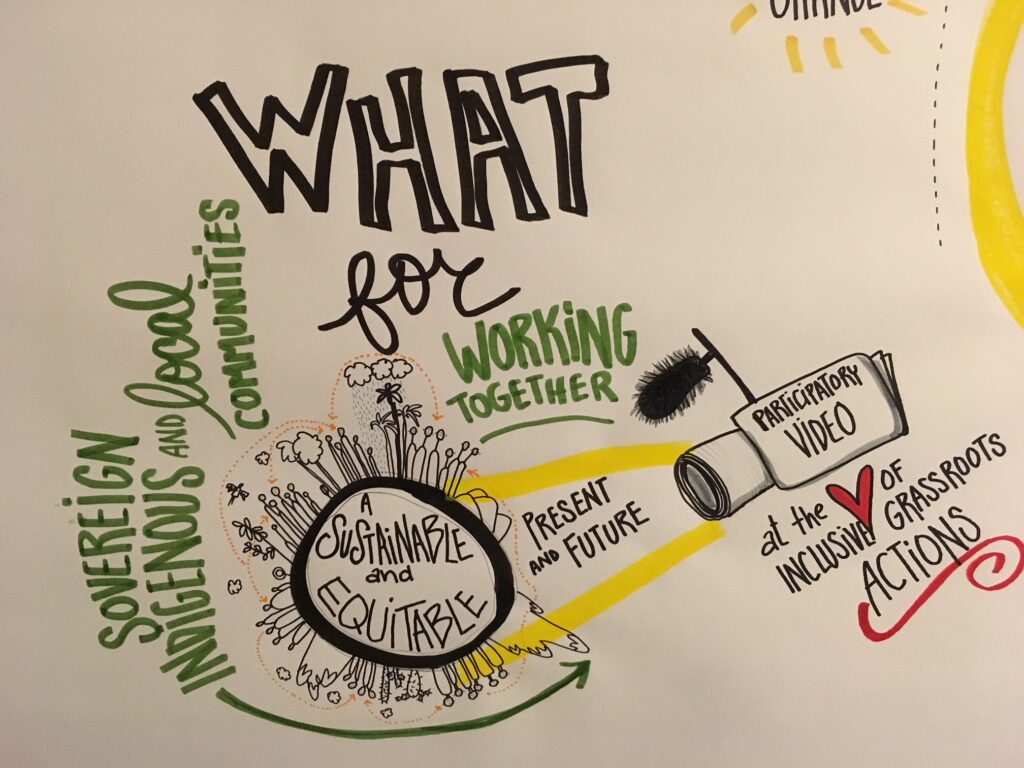 CHANGE
WHAT
for
SOVEREIGN
INDIGENOUS AND local
COMMUNITIES
WORKING
TOGETHER
A
SUSTAINABLE
and
EQUITABLE
PRESENT
AND FUTURE
PARTICIPATORY
VIDEO
at the OF
INCLUSIVE GRASSROOTS
ACTIONS